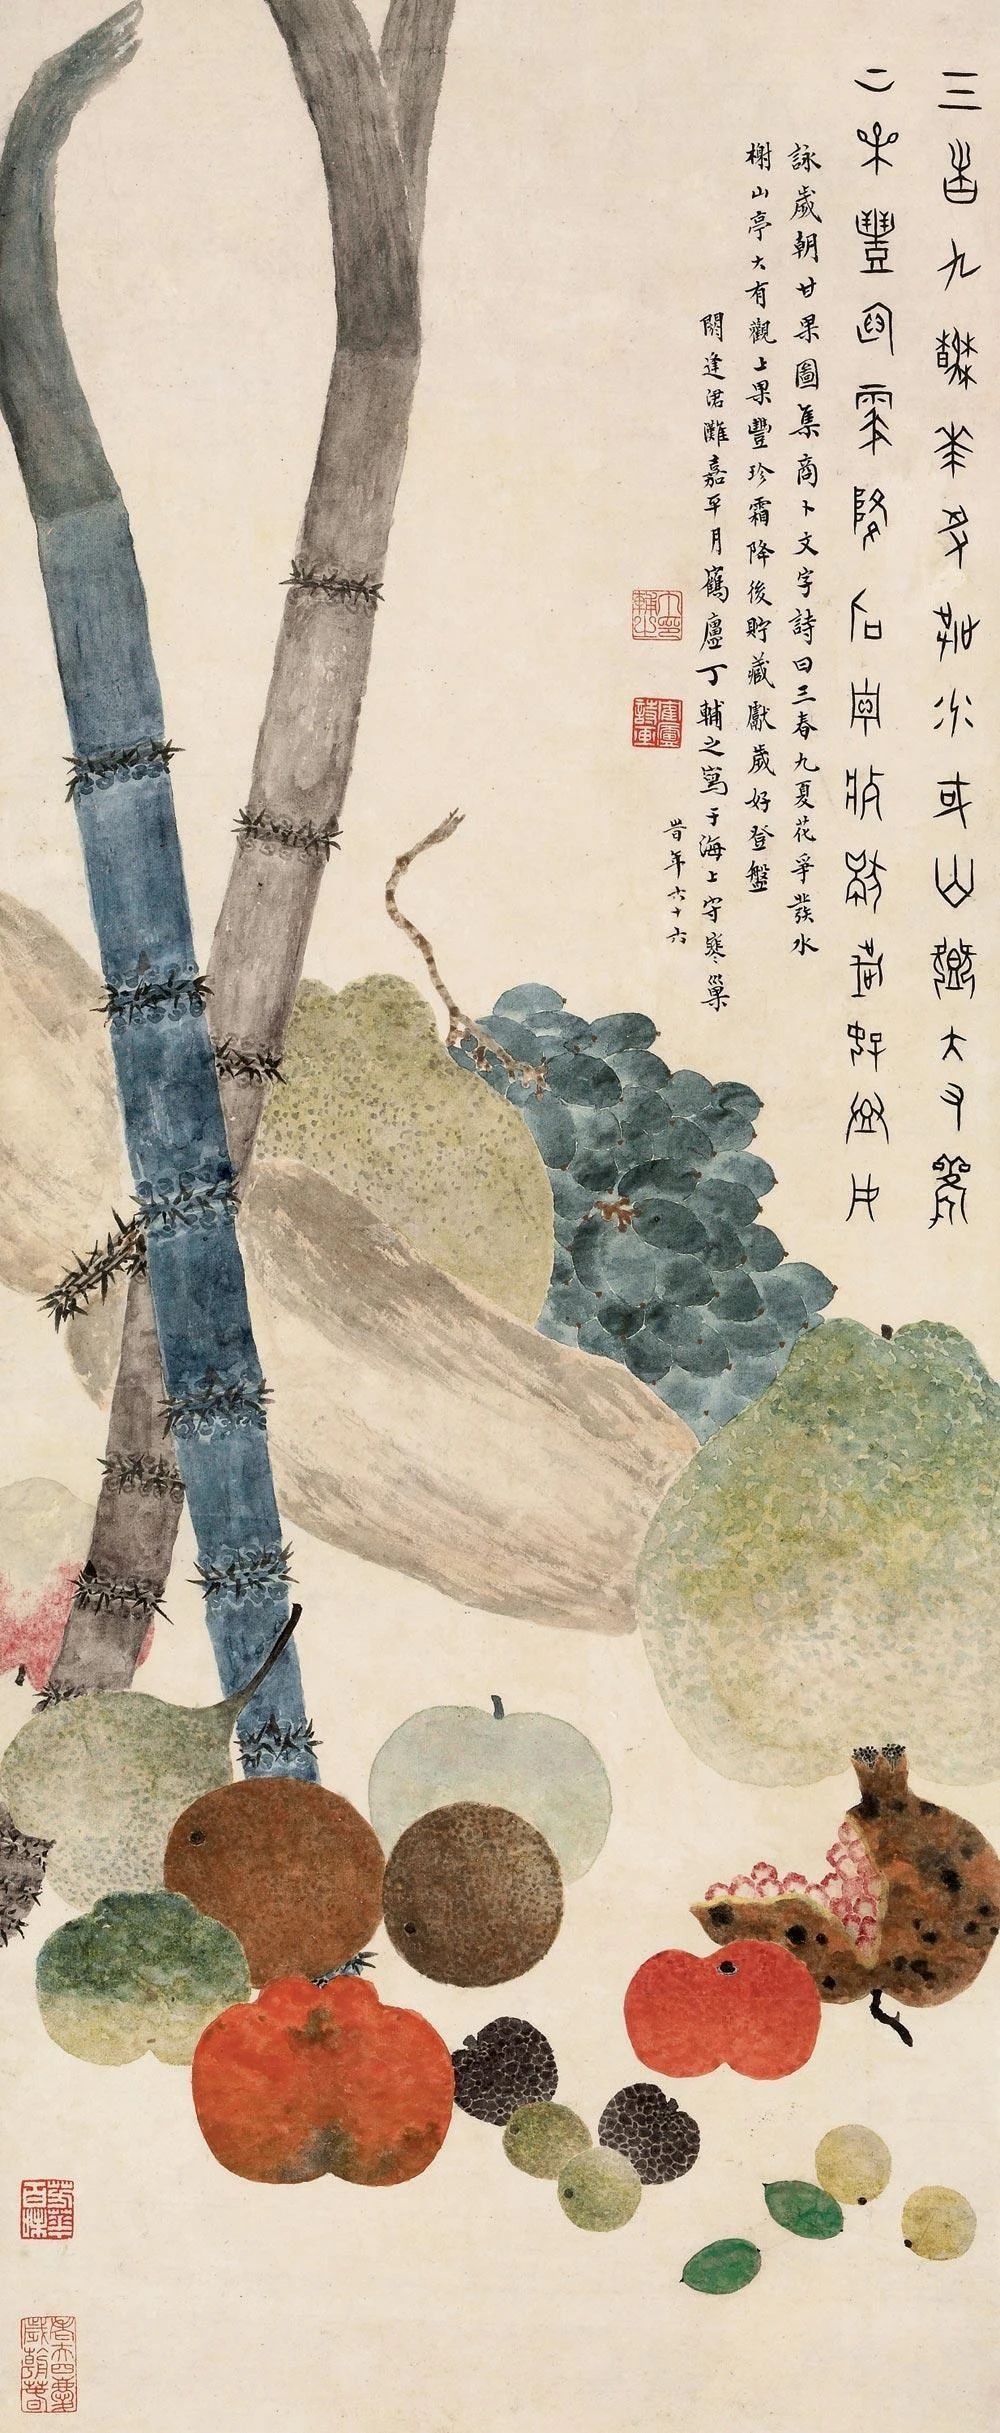 三春九夏花爭發水榭山亭大有觀
上果豐珍霜降後貯藏獻歲好登盤
詠歲朝甘果圖集商卜文字詩曰三春九夏花爭發水
榭山亭大有觀上果豐珍霜降後貯藏獻歲好登盤
閼逢涒灘嘉平月鶴廬丁輔之寫于海上守寒巢
旹年六十六